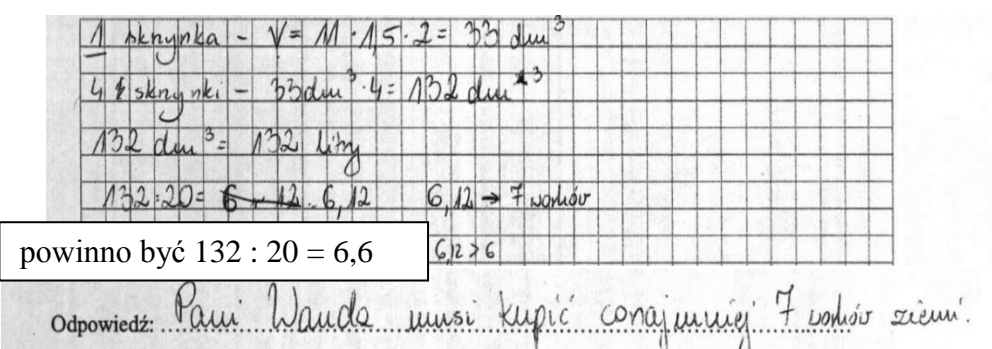 1 skrzynka - V = 11 · 1,5 · 2 = 33 dm³
4 skrzynki - 33dm³ · 4 = 132 dm³
132 dm³ = 132 litry
132:20 = 6,12 6,12 → 7 worków
powinno być 132 : 20 = 6,6
6,12 > 6
Odpowiedź: Pani Wanda musi kupić conajmniej 7 worków ziemi.